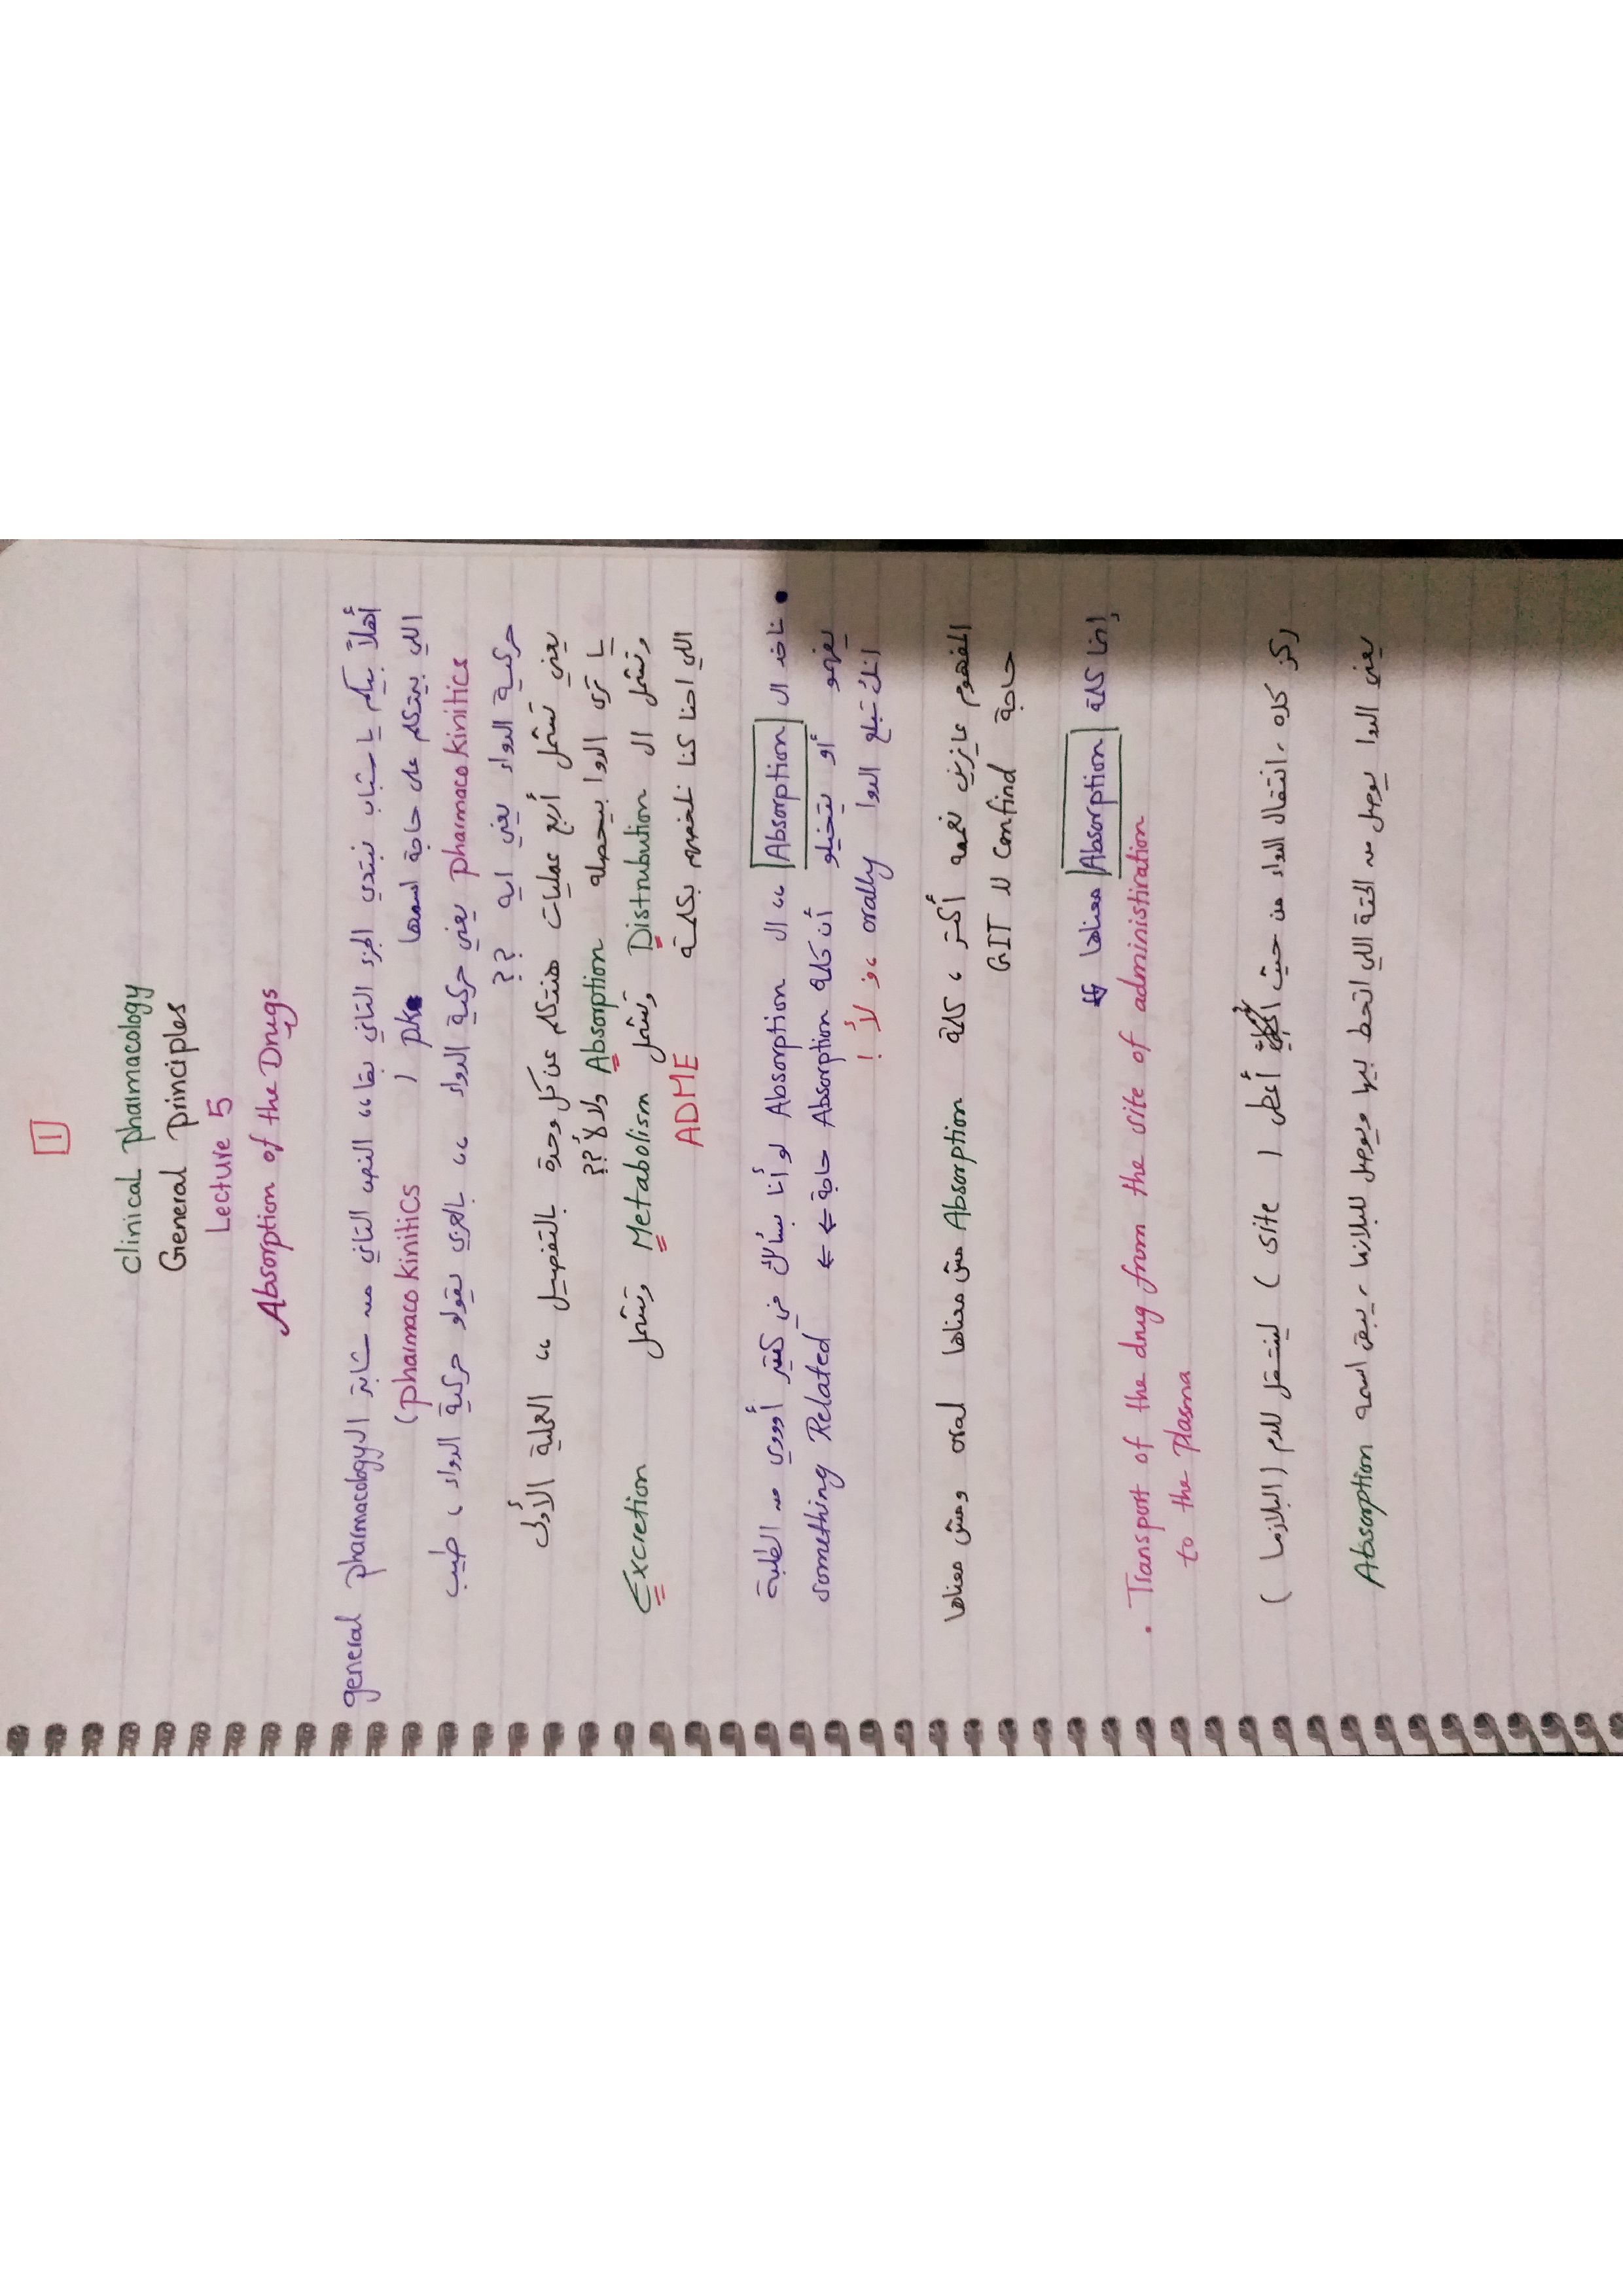 1
Clinical Pharmacology
General Principles
Lecture 5
Absorption of the Drugs
أهلاً بيكم يا شباب نبتدي الجزء التاني بقا ،، النص التاني من شابتر الـ general pharmacology
اللي بيتكلم على حاجة اسمها pk ( pharmaco kinitics )
pharmaco kinitics يعني حركية الدواء ،، بالعربي يقولو حركية الدواء ، طيب
حركية الدواء يعني ايه ؟؟
يعني تشمل أربع عمليات هنتكلم عن كل وحدة بالتفصيل ،، العملية الأولى
يا ترى الدوا بيحصله Absorption ولا لأ ؟؟
وتشمل ال Distrubution وتشمل Metabolism وتشمل Excretion
اللي احنا كنا نلخصهم بكلمة ADME
• ناخد ال Absorption ،، ال Absorption لو أنا بسألك في كتير أوووي من الطلبة
يفهمو أو يتخيلو أن كلمة Absorption حاجة ⇐⇐ something Related
انك تبلع الدوا orally ،، فـ لأ !
المفهوم عايزين نعمقه أكتر ، كلمة Absorption مش معناها oral ومش معناها
حاجة confind لـ GIT
إنما كلمة Absorption معناها ⇓
• Transport of the drug from the site of administiration
to the plasma
ركز كده ، انتقال الدواء من حيث أعطى ( site ) لينتقل للدم ( البلازما )
يعني الدوا يوصل من الحتة اللي اتحط بيها ويوصل للبلازما ، يبقى اسمه Absorption